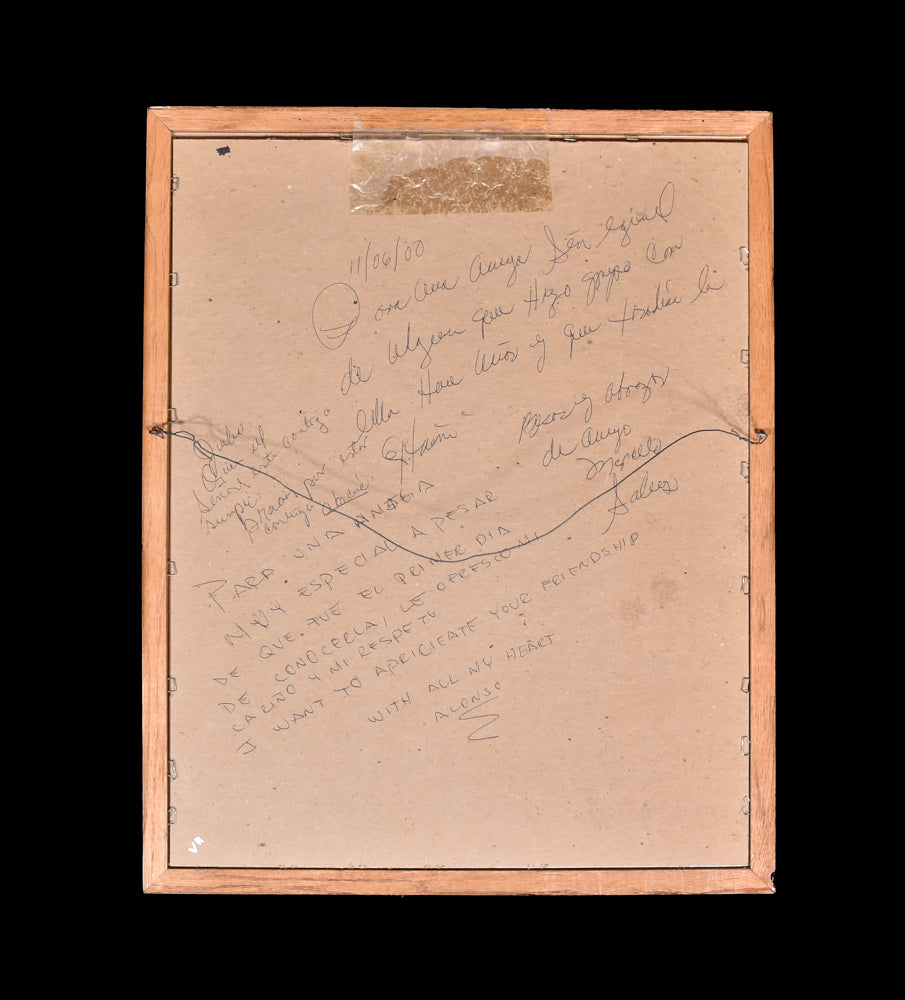 11/06/00
Para una amiga Sin igual
de alguien que Hizo grupo con
ella Hace años y que tendrán la
Besos y Abrazos
de amigo
Marcelo
Que el
Señor este contigo
siempre
Gracias por estar
contigo
PARA UNA AMIGA
MUY ESPECIAL A PESAR
DE QUE FUE EL PRIMER DIA
DE CONOCERLA, LE OFRESCO MI
CARIÑO Y MI RESPETO
I WANT TO APRICIEATE YOUR FRIENDSHIP
WITH ALL MY HEART
ALONSO